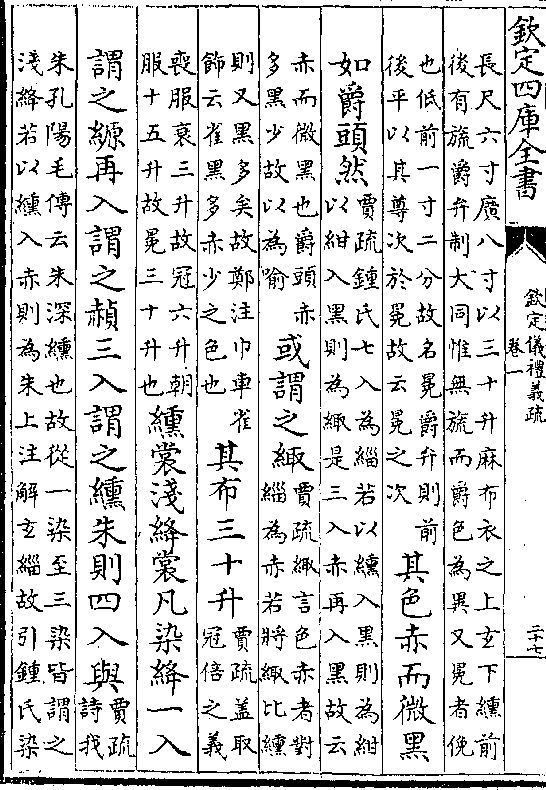 欽定四庫全書
欽定儀禮義疏
卷一
二十七
長尺六寸廣八寸以三十升麻布衣之上玄下纁前
後有旒爵弁制大同惟無旒而爵色為異又冕者俛
也低前一寸二分故名冕爵弁則前
後平以其尊次於冕故云冕之次
其色赤而微黑
如爵頭然
賈疏鍾氏七入為緇若以纁入黑則為紺
以紺入黑則為緅是三入赤再入黑故云
赤而微黑也爵頭赤
多黑少故以為喻
或謂之緅
賈疏緅言色赤者對
緇為赤若將緅比纁
則又黑多矣故鄭注巾車雀
飾云雀黑多赤少之色也
其布三十升
賈疏蓋取
冠倍之義
喪服衰三升故冠六升朝
服十五升故冕三十升也
纁裳淺絳裳凡染絳一入
謂之縓再入謂之赬三入謂之纁朱則四入與
賈疏
詩我
朱孔陽毛傳云朱深纁也故從一染至三染皆謂之
淺絳若以纁入赤則為朱上注解玄緇故引鍾氏染